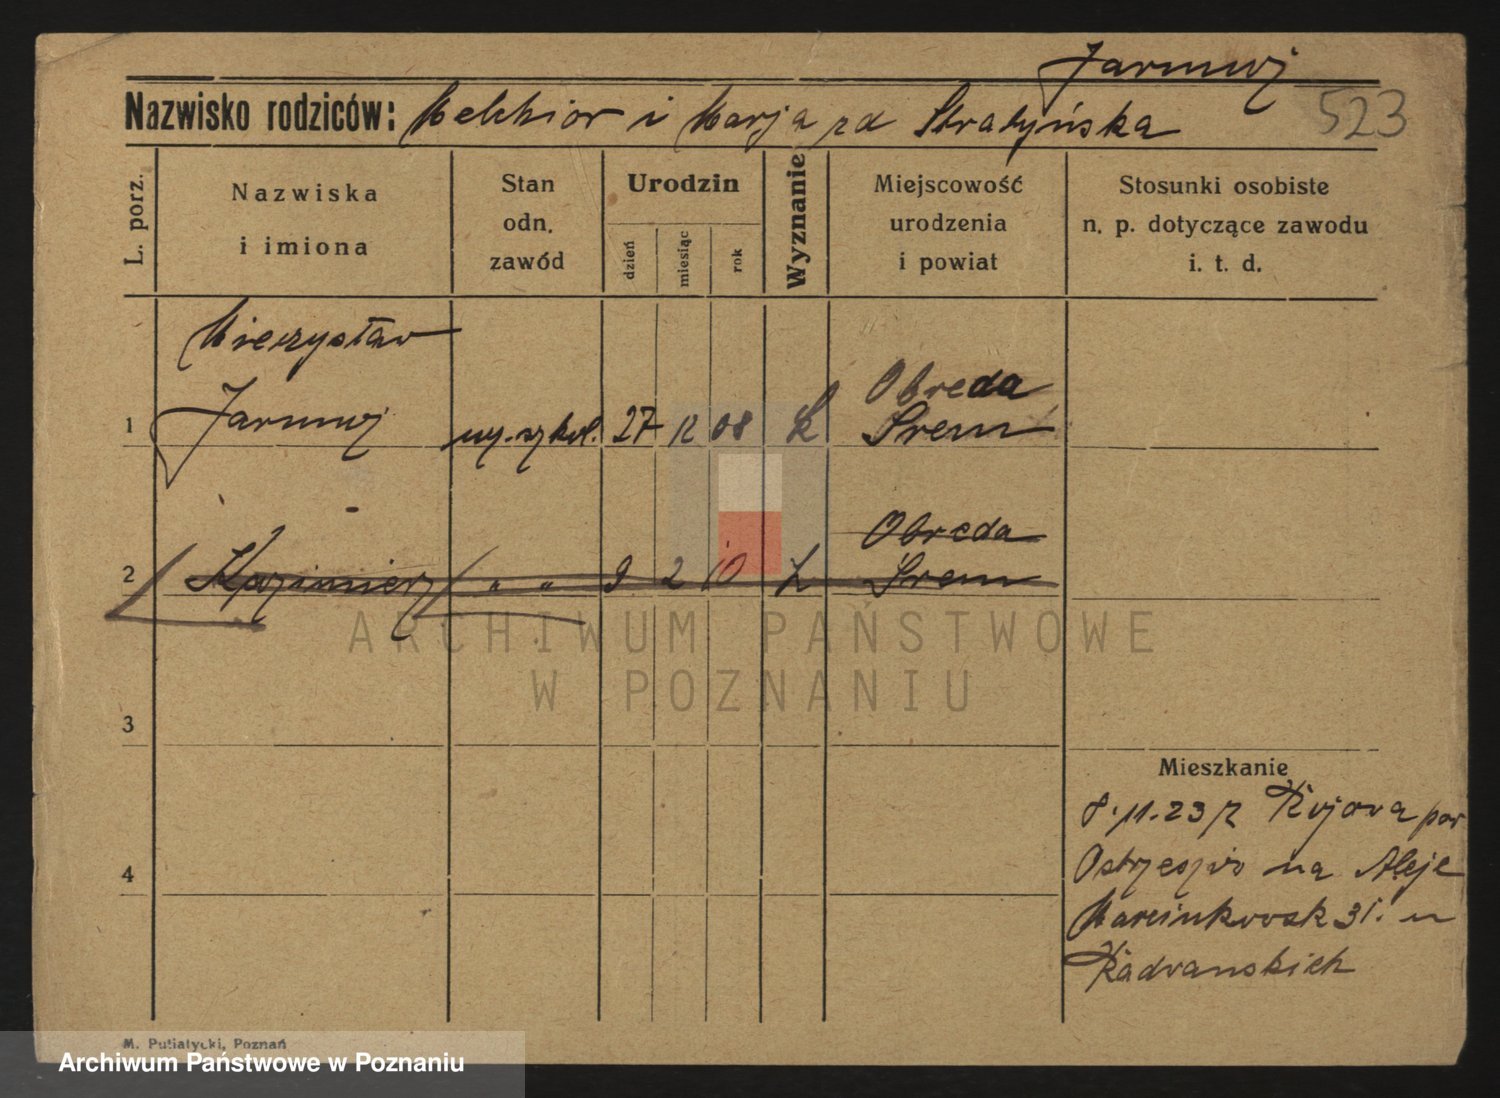 Jarmuż
523
Nazwisko rodziców: Melchior i Marja zd Stratyńska
L. porz.
Nazwiska i imiona
Stan odn. zawód
Urodzin
dzień
miesiąc
rok
Wyznanie
Miejscowość urodzenia i powiat
Stosunki osobiste n. p. dotyczące zawodu i. t. d.
Mieczysław
1 Jarmuż 27 12 08 k Obreda Śrem
2 Kazimierz " " 9 2 10 k Obreda Śrem
3
4
Mieszkanie
8.11.23 z Kujowa por
na Aleje
Marcinkowsk 31. u
Radwanskich
M. Putiatycki, Poznań
ARCHIWUM PAŃSTWOWE
W POZNANIU
Archiwum Państwowe w Poznaniu